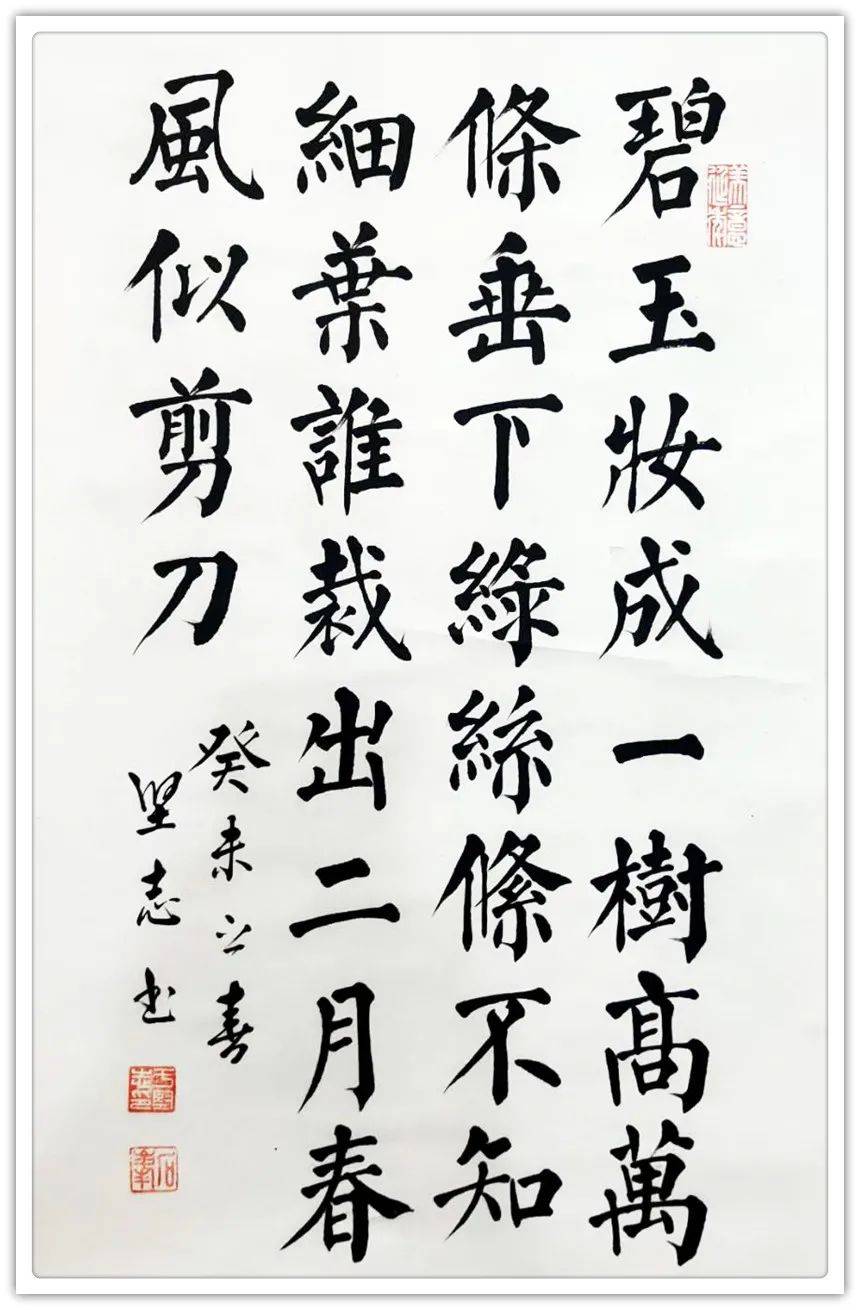 碧玉妝成一樹髙萬
條垂下綠絲絛不知
細葉誰裁出二月春
風似剪刀
癸未之春
坚志书
美意延年